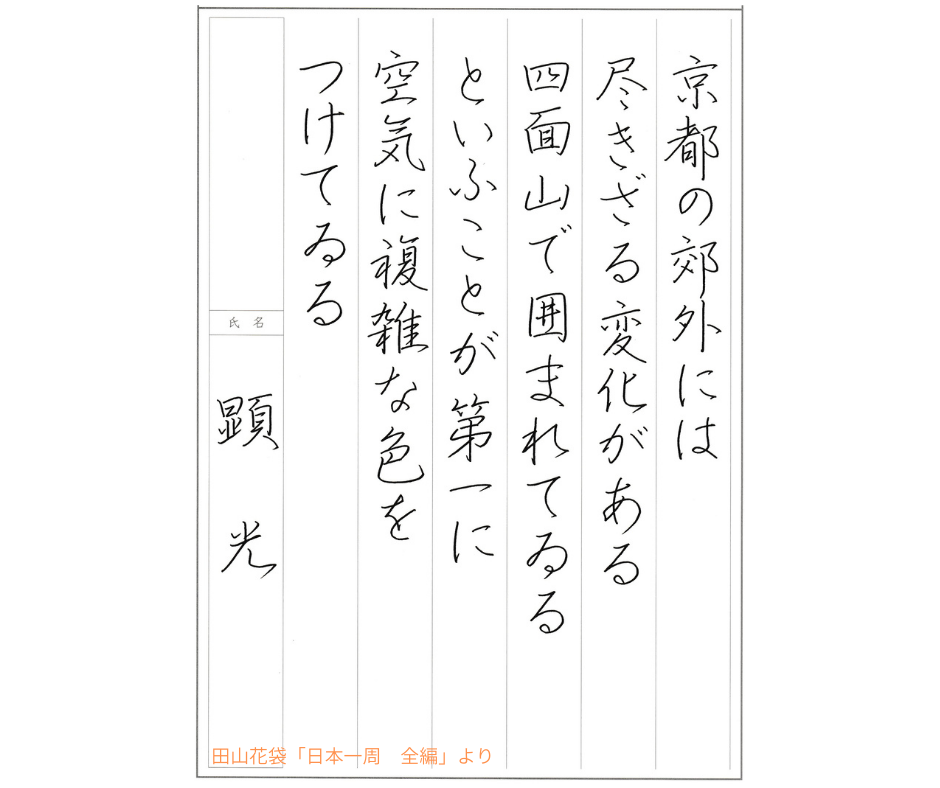 京都の郊外には
尽きざる変化がある
四面山で囲まれてゐる
といふことが第一に
空気に複雑な色を
つけてゐる
氏名
顕光
田山花袋「日本一周　全編」より